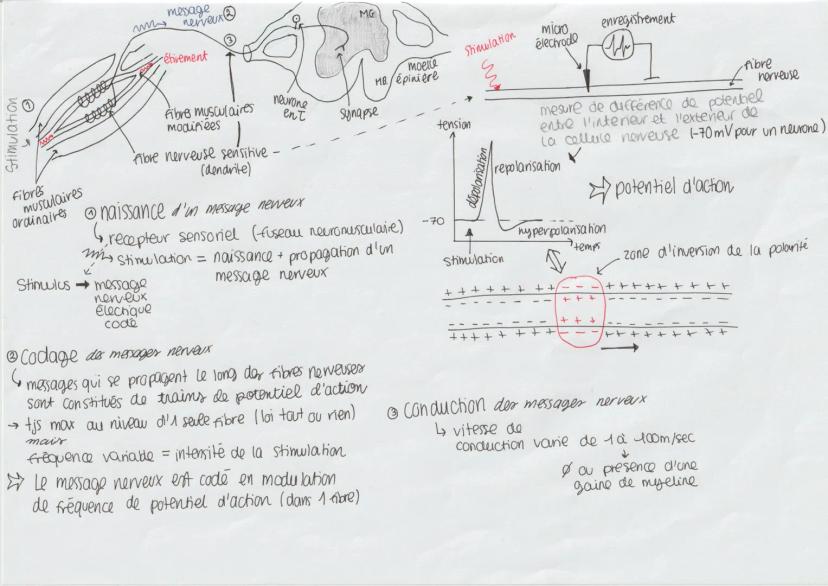 message
nerveux ②
③
MG
MB
moelle
épinière
étirement
neurone
en T
synapse
Stimulation ①
fibre musculaires
modifiées
fibre nerveuse sensitive
(dendrite)
fibres
musculaires
ordinaires
Stimulation
micro
électrode
enregistrement
fibre
nerveuse
mesure de différence de potentiel
entre l'intérieur et l'extérieur de
la cellule nerveuse (-70mV pour un neurone)
tension
dépolarisation
repolarisation
potentiel d'action
-70
hyperpolarisation
temps
stimulation
zone d'inversion de la polarité
+ + + + + + + + + - - - + + + + + + + + +
- - - - - - - - - + + + - - - - - - - - -
- - - - - - - - - + + + - - - - - - - - -
+ + + + + + + + + - - - + + + + + + + + +
① naissance d'un message nerveux
↳ récepteur sensoriel (fuseau neuromusculaire)
stimulation = naissance + propagation d'un
message nerveux
Stimulus → message
nerveux
électrique
codé
② codage des messages nerveux
↳ messages qui se propagent le long des fibres nerveuses
sont constitués de trains de potentiel d'action
→ tjs max au niveau d'1 seule fibre (loi tout ou rien)
mais
fréquence variable = intensité de la stimulation
⇒ Le message nerveux est codé en modulation
de fréquence de potentiel d'action (dans 1 fibre)
③ conduction des messages nerveux
↳ vitesse de
conduction varie de 1 à 100m/sec
↓
∅ ou présence d'une
gaine de myéline